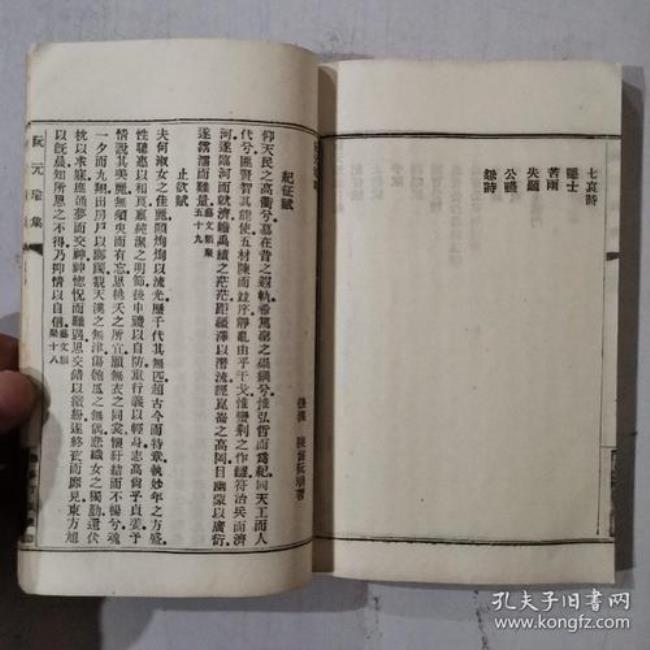 七哀詩
隱士
苦雨
失題
公讌
雜詩
紀征賦
後漢 陳留阮瑀著
仰天民之高衢兮慕在昔之遐軌希篤聖之崇綱兮惟弘哲而爲紀同天工而人
代兮匪賢智其能使五材陳而並序靜亂由乎干戈惟蠻荊之作讎將治兵而濟
河遂臨河而就濟瞻禹績之茫茫距疆澤以潛流經昆崙之高岡目幽蒙以廣衍
遂霑濡而難量藝文類聚五十九
止欲賦
夫何淑女之佳麗顏㶷㶷以流光歷千代其無匹超古今而特章執妙年之方盛
性聰惠以和良稟純潔之明節後申禮以自防重行義以輕身志高尚乎貞姜予
情說其美麗無須臾而有忘思桃夭之所宜願無衣之同裳懷紆結而不暢兮魂
一夕而九翔出房戶以躑躅覩天漢之無津傷匏瓜之無偶悲織女之獨勤還伏
枕以求寐庶通夢而交神神惚怳而難遇思交錯以繽紛遂終夜而靡見東方旭
以既晨知所思之不得乃抑情以自信藝文類聚十八
阮元瑜集
孔夫子旧书网
www.kongfz.com